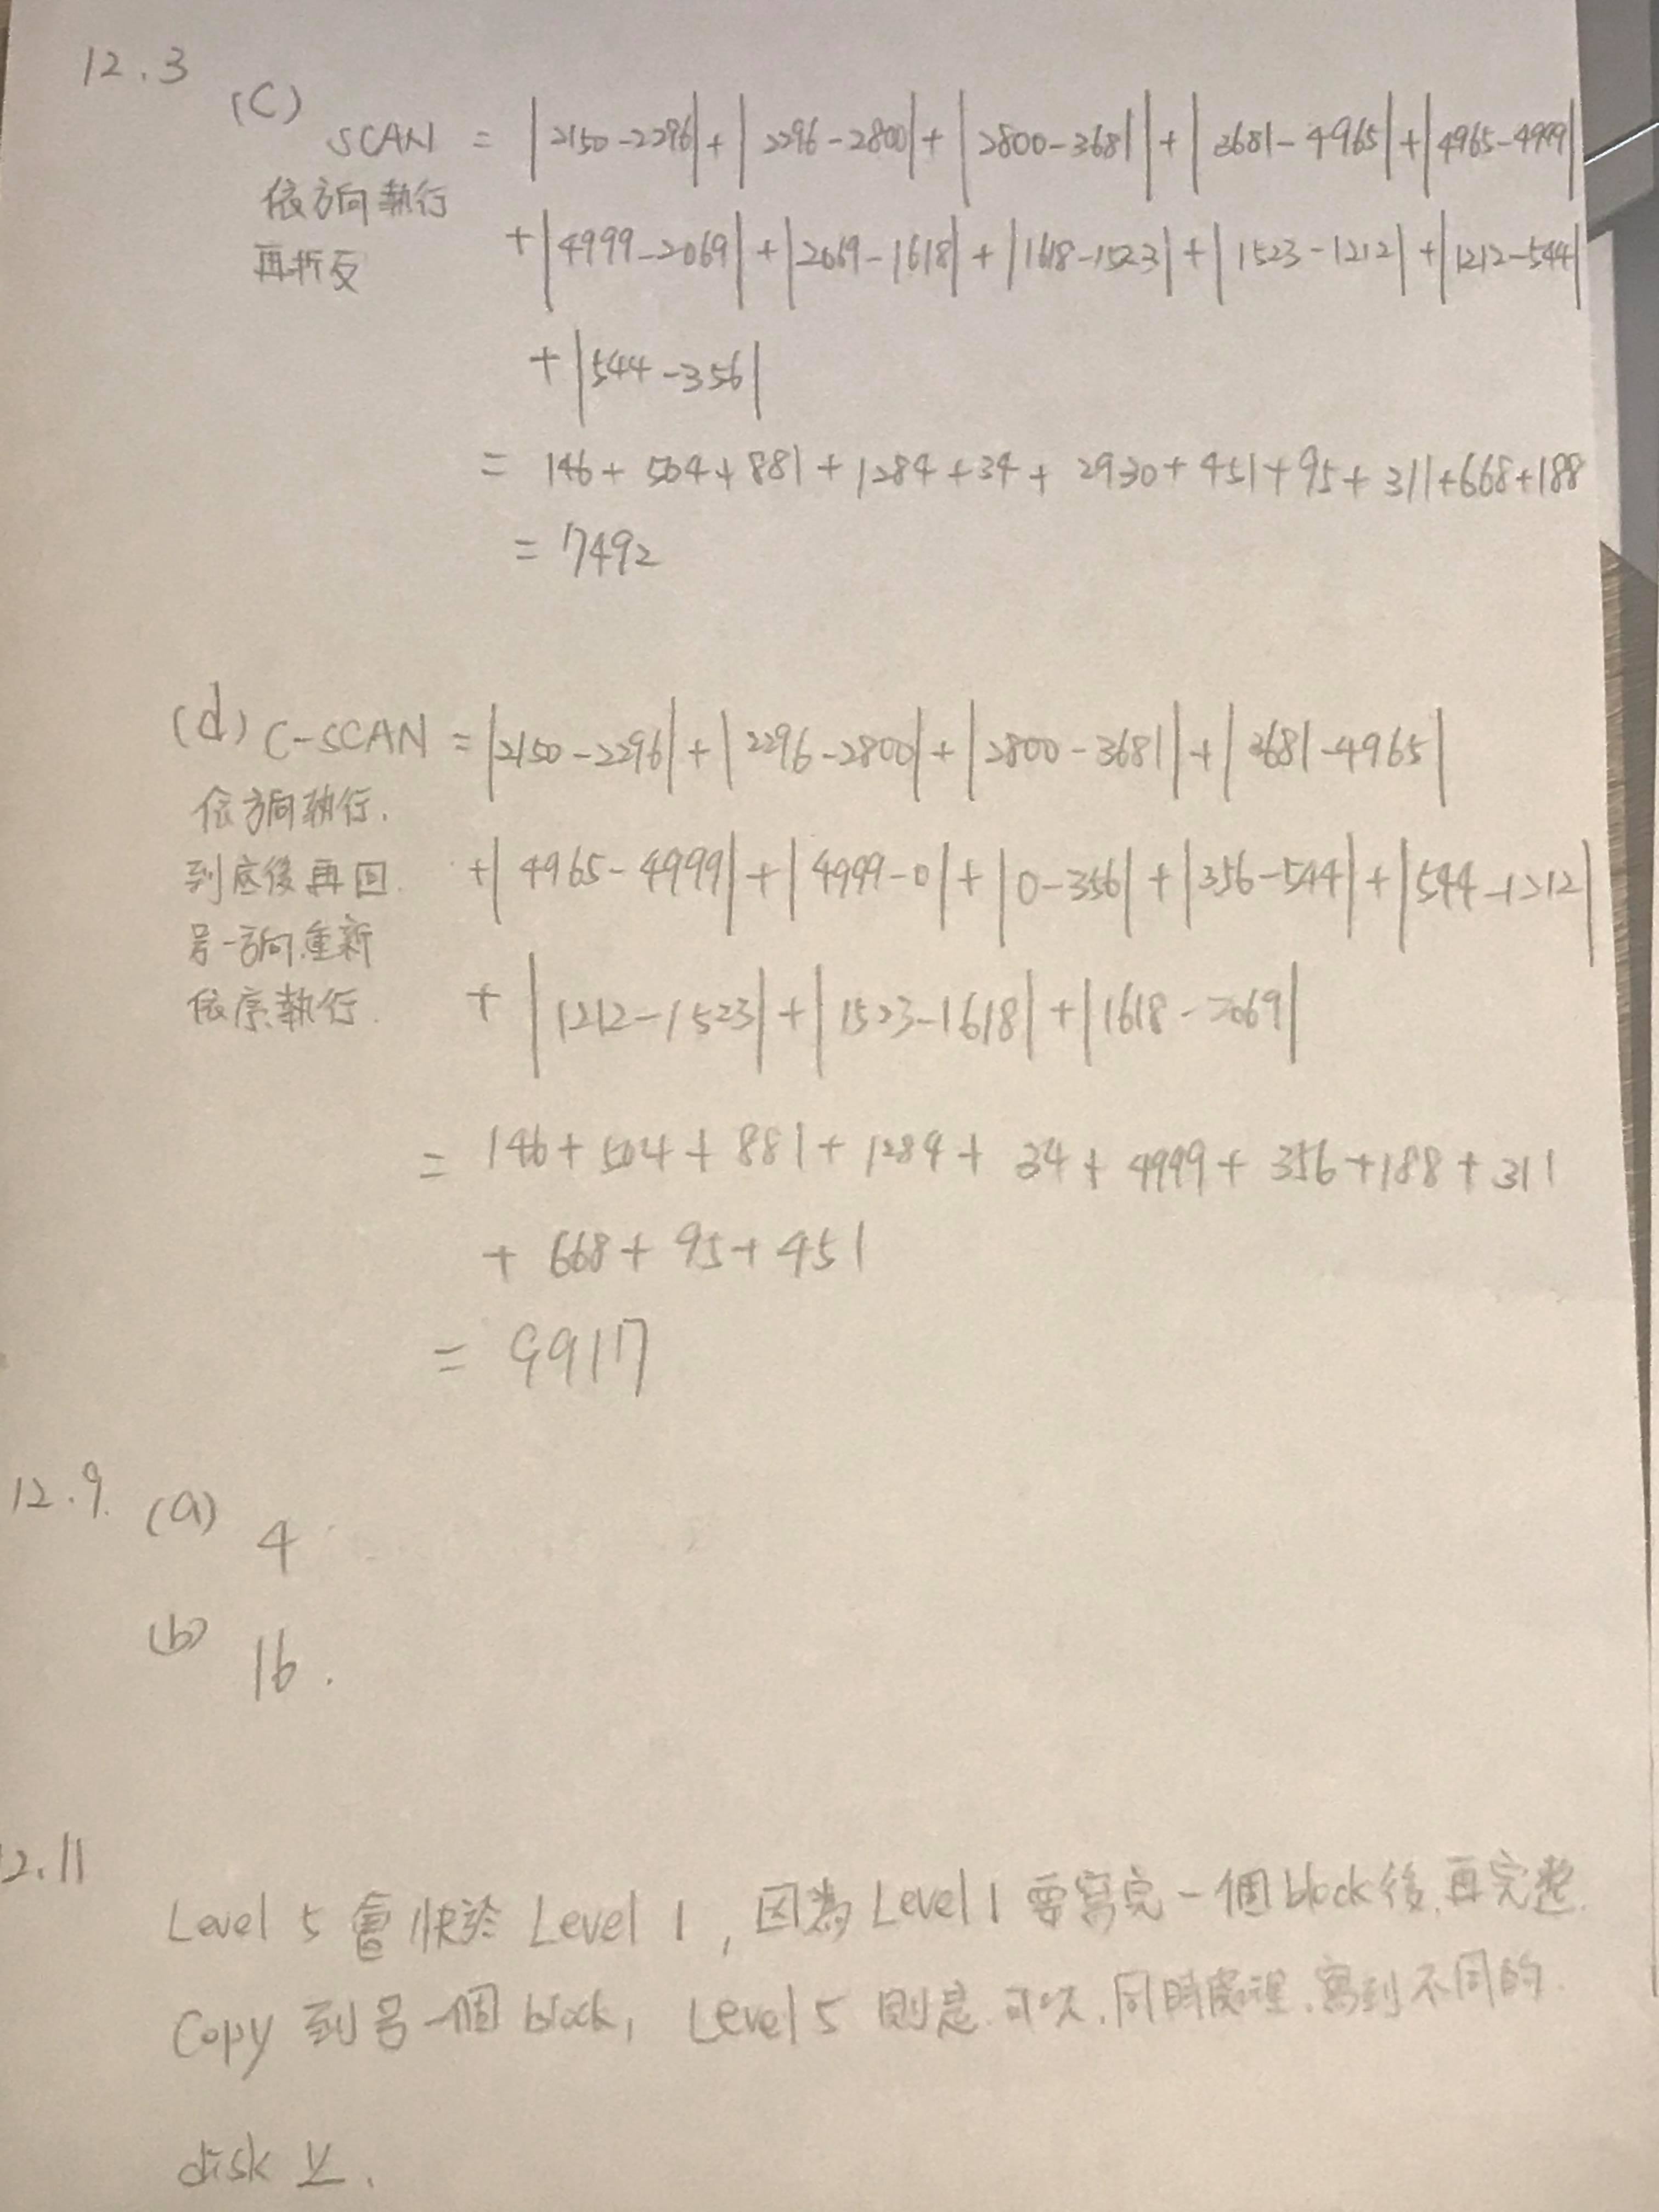 12.3
(C)
SCAN = |2150-2296|+|2296-2800|+|2800-3681|+|3681-4965|+|4965-4999|
依方向執行
+|4999-2069|+|2069-1618|+|1618-1523|+|1523-1212|+|1212-544|
再折反
+|544-356|
= 146+504+881+1284+34+2930+451+95+311+668+188
= 7492
(d) C-SCAN = |2150-2296|+|2296-2800|+|2800-3681|+|3681-4965|
依方向執行.
+|4965-4999|+|4999-0|+|0-356|+|356-544|+|544-1212|
到底後再回
另一方向重新
+|1212-1523|+|1523-1618|+|1618-2069|
依序執行.
= 146+504+881+1284+34+4999+356+188+311
+668+95+451
= 9917
12.9. (a) 4
(b) 16.
2.11
Level 5 會快於 Level 1, 因為 Level 1 要寫完一個block後,再完整
Copy 到另一個block, Level 5 則是可以,同時處理,寫到不同的
disk 上.